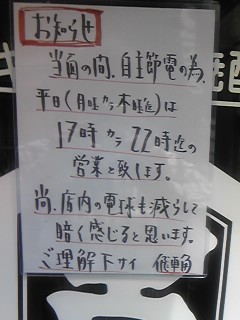 お知らせ
当面の間、自主節電の為、
平日(月曜カラ木曜迄)は
17時カラ22時迄の
営業と致します。
尚、店内の電球も減らして
暗く感じると思います。
ご理解下サイ